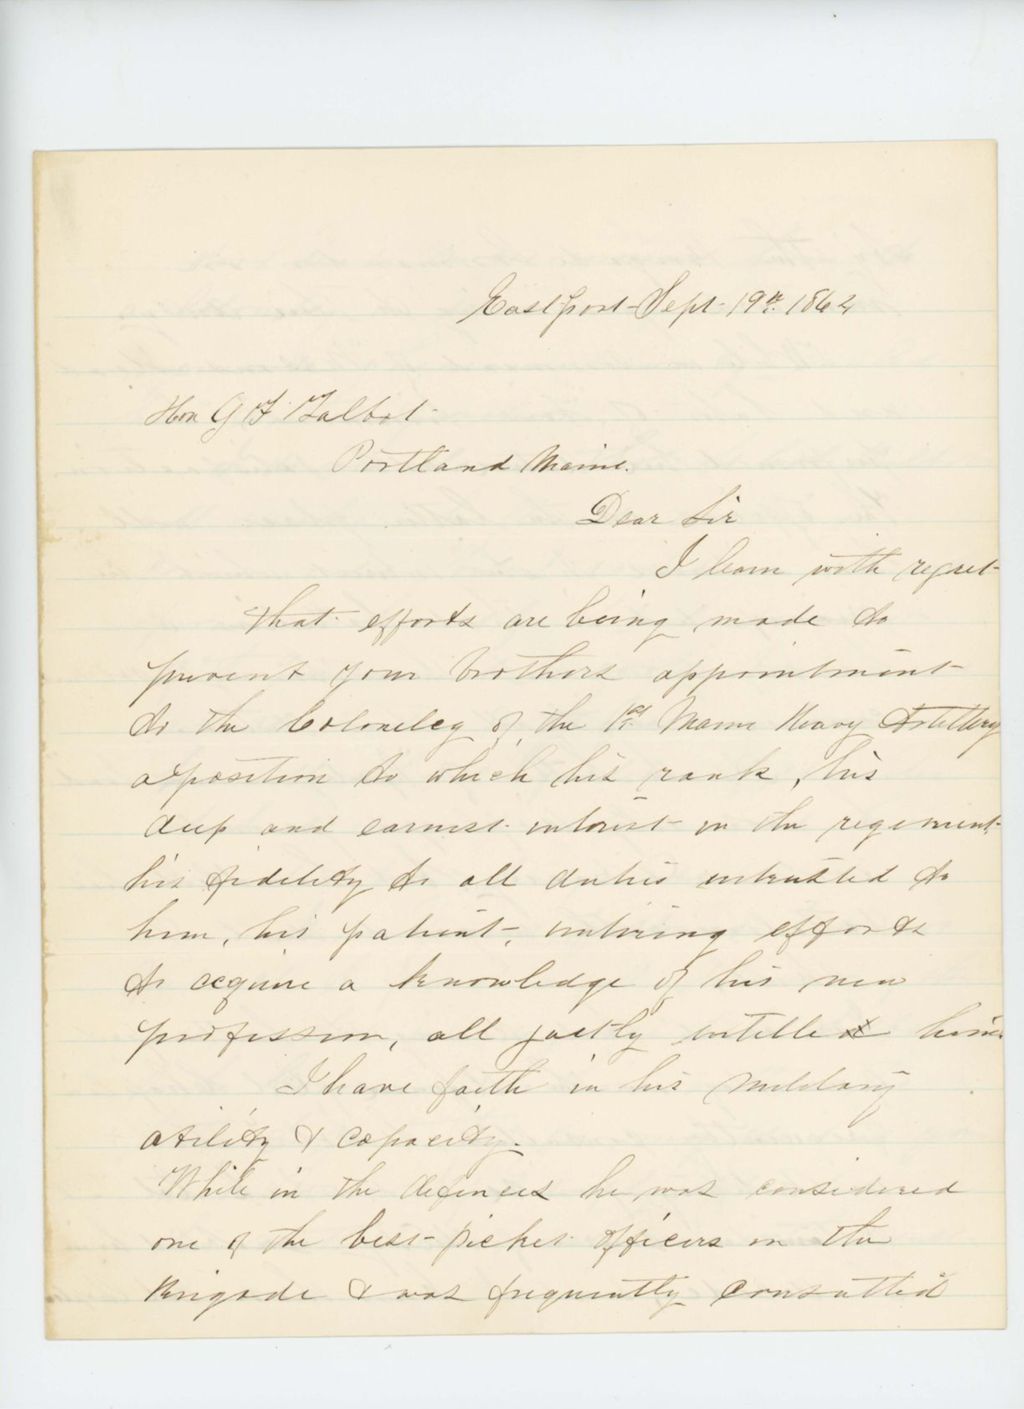 Eastport Sept 19th 1864
Hon G F Talbot
Portland Maine.
Dear Sir
I learn with regret
that efforts are being made to
prevent your brothers appointment
to the Colonelcy of the 1st Maine Heavy Artillery
a position to which his rank, his
deep and earnest interest in the regiment
his fidelity to all duties intrusted to
him, his patient, untiring efforts
to acquire a knowledge of his new
profession, all justly intitle him.
I have faith in his military
ability & capacity.
While in the defences he was considered
one of the best picket officers in the
Brigade & was frequently consulted